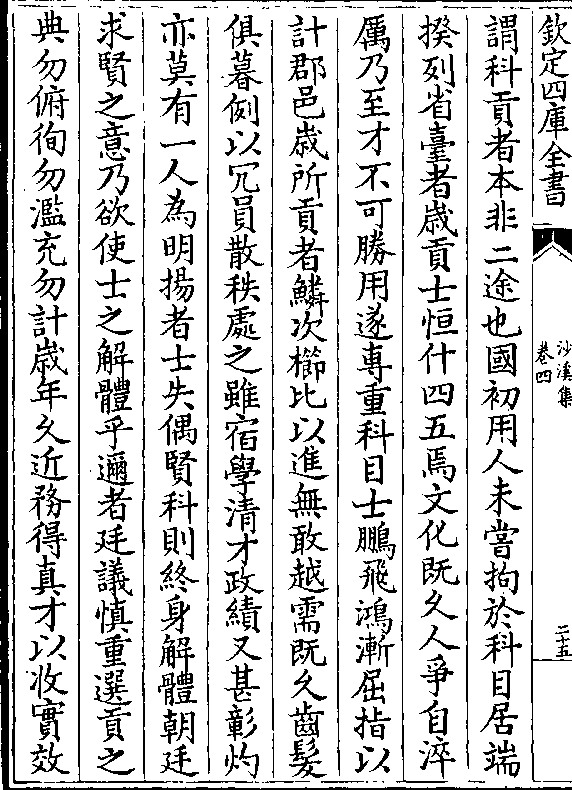 欽定四庫全書
沙溪集
卷四
二十五
謂科貢者本非二途也國初用人未嘗拘於科目居端
揆列省臺者歲貢士恒什四五焉文化既久人爭自淬
厲乃至才不可勝用遂專重科目士鵬飛鴻漸屈指以
計郡邑歲所貢者鱗次櫛比以進無敢越需既久齒髮
俱暮例以冗員散秩處之雖宿學清才政績又甚彰灼
亦莫有一人為明揚者士失偶賢科則終身解體朝廷
求賢之意乃欲使士之解體乎邇者廷議慎重選貢之
典勿俯徇勿濫充勿計歲年久近務得真才以收實效